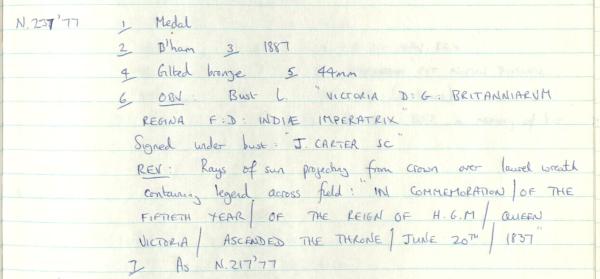 N.237'77 1 Medal
2 B'ham 3 1887
4 Gilted bronze 5 44mm
6 OBV: Bust L "VICTORIA D:G: BRITANNIARVM
REGINA F:D: INDIÆ IMPERATRIX"
Signed under bust: "J. CARTER SC"
REV: Rays of sun projecting from crown over laurel wreath
containing legend across field: "IN COMMEMORATION / OF THE
FIFTIETH YEAR / OF THE REIGN OF H.G.M / QUEEN
VICTORIA / ASCENDED THE THRONE / JUNE 20TH / 1837"
7 As N.217'77